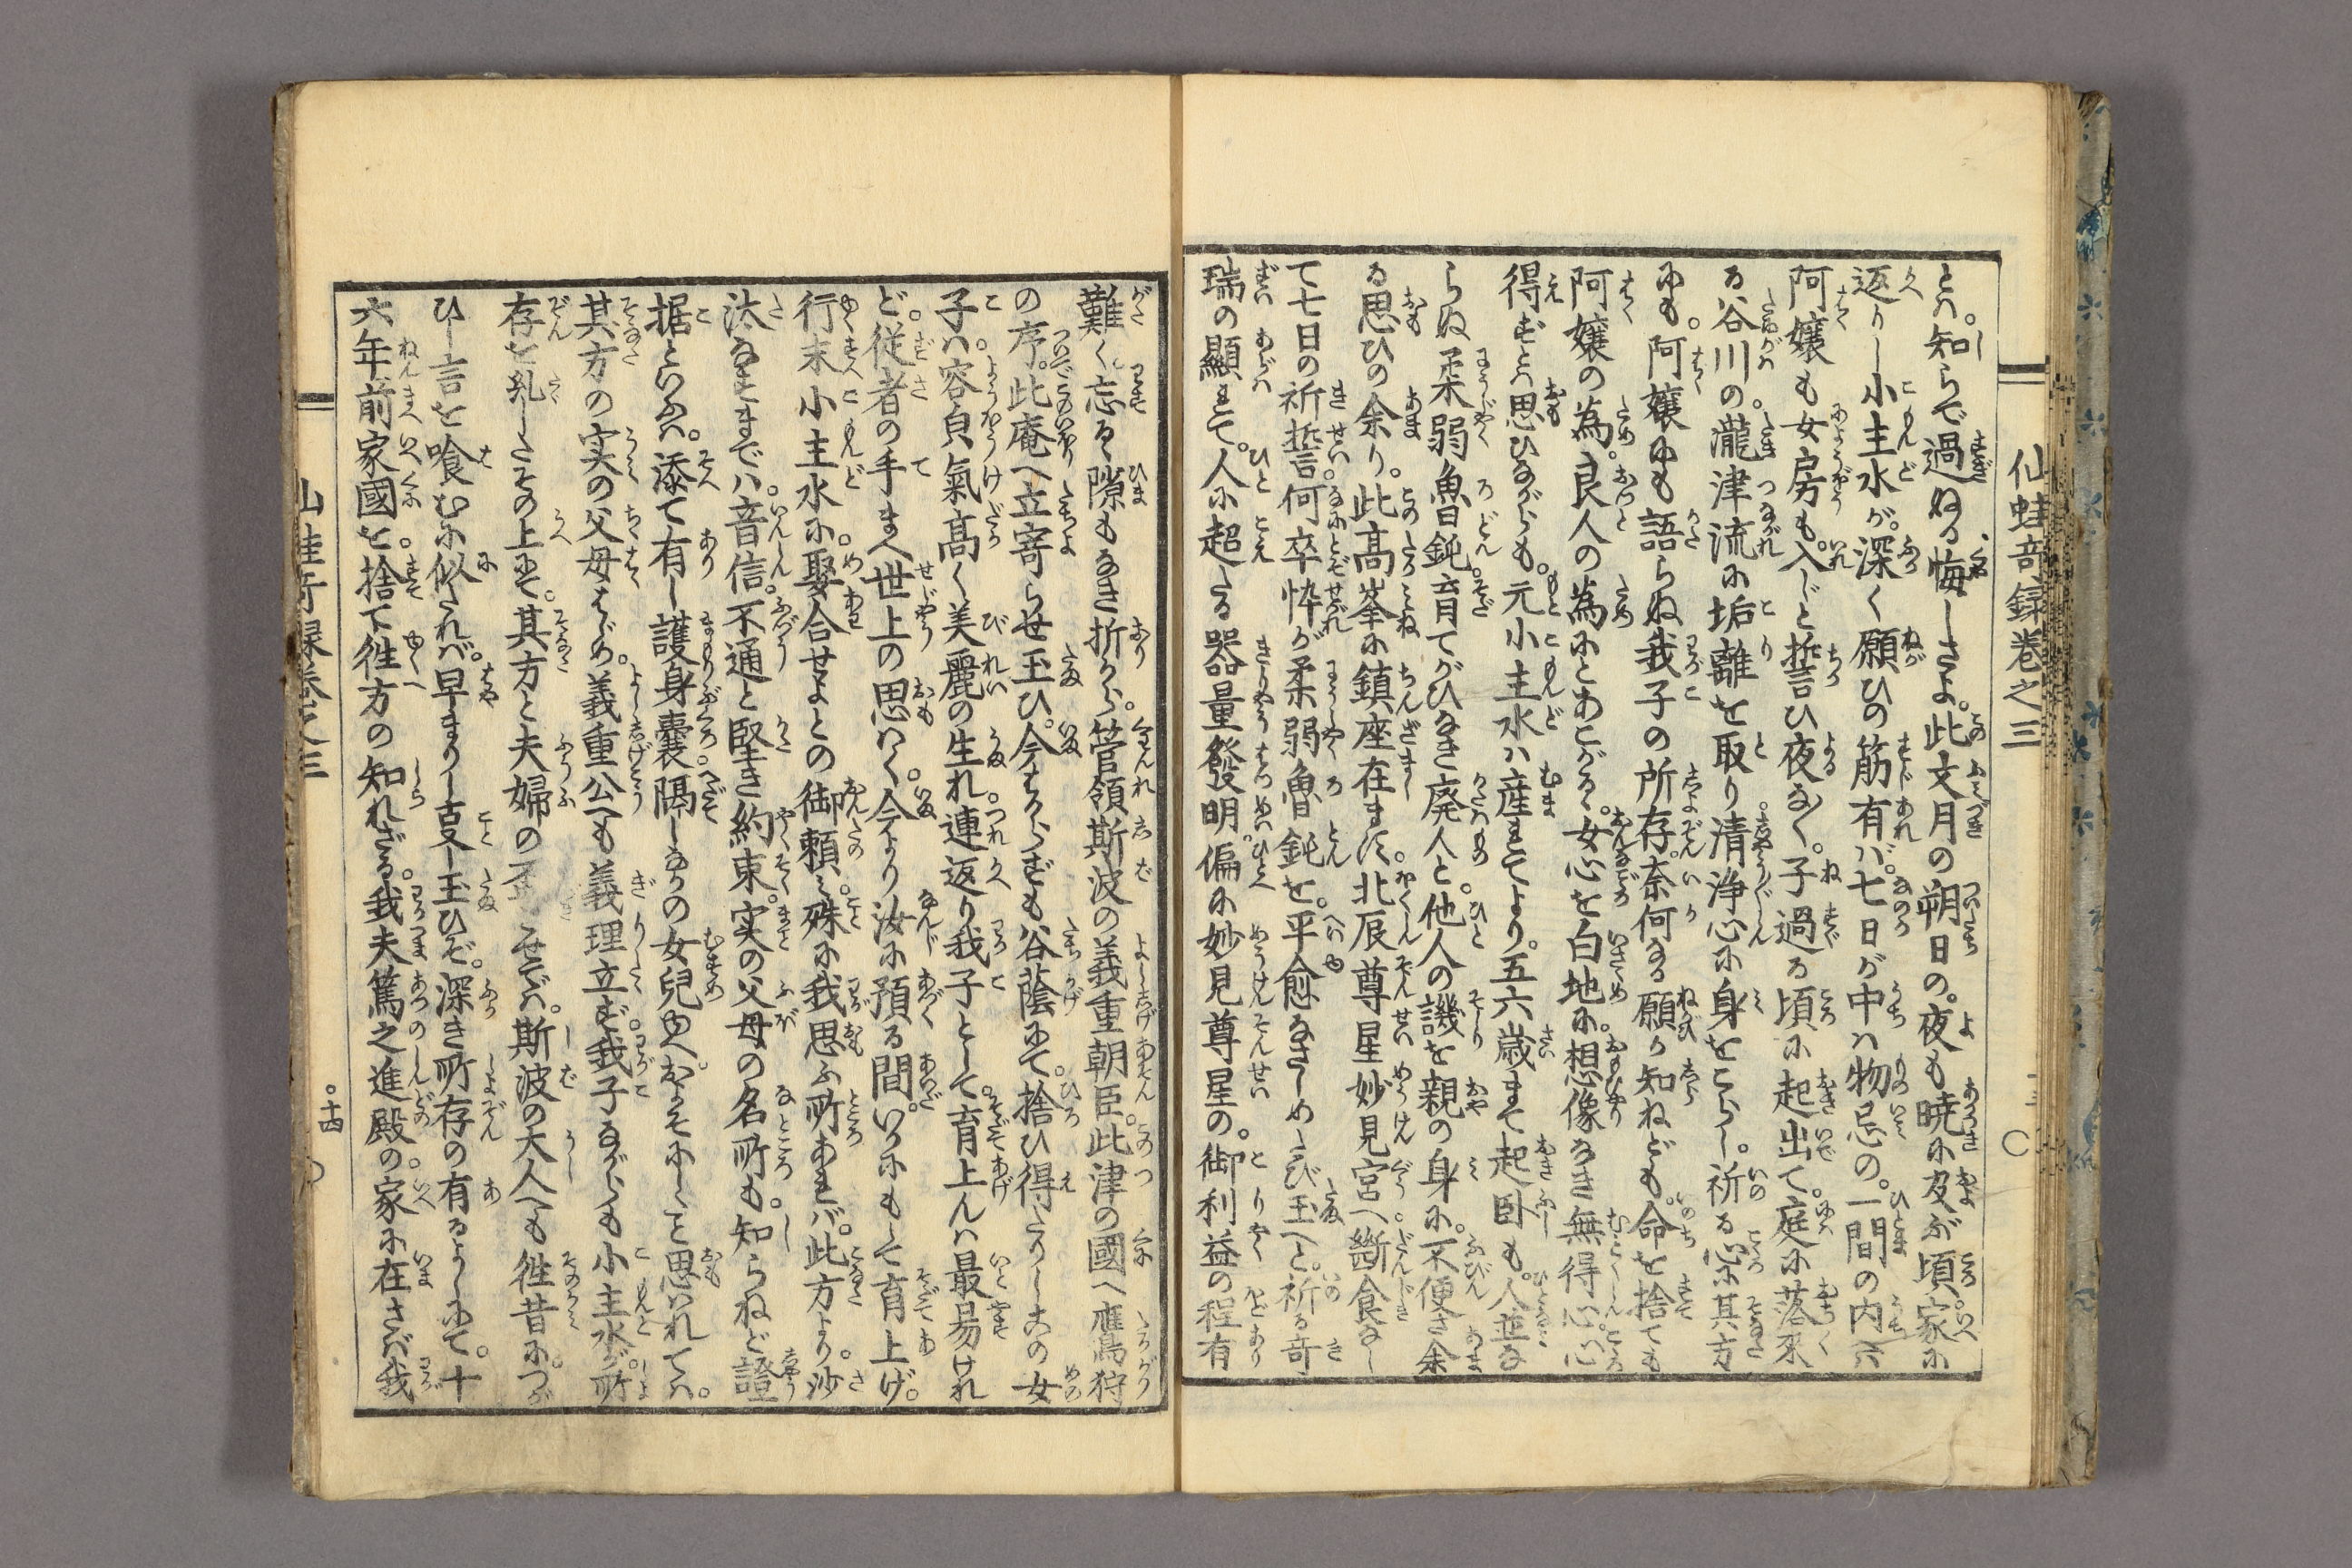 仙蛙竒録巻之三
とハ。知らで過ぬる悔しさよ。此文月の朔日の。夜も暁に及ぶ頃。家に
返りし小主水が。深く願ひの筋有バ。七日が中ハ物忌の。一間の内へハ
阿嬢も女房も。入じと誓ひ夜な〳〵。子過る頃に起出て。庭に落来
る谷川の。瀧津流に垢離を取り。清浄心に身をこらし。祈る心ハ其方
にも。阿嬢にも語らぬ我子の所存。奈何なる願か知ねども。命を捨ても
阿嬢の為。良人の為にとあこがるゝ。女心を白地に。想像なき無得心。心
得ずとハ思ひながらも。元小主水ハ産れてより。五六歳まで起臥も。人並な
らぬ柔弱魯鈍。育てがひなき廃人と。他人の譏を親の身に。不便さ余
る思ひの余り。此高峯に鎮座在ます。北辰尊星妙見宮へ。断食なし
て七日の祈誓。何卒忰が柔弱魯鈍を。平愈なさしめたび玉へと。祈る竒
瑞の顯れて。人に超たる器量發明。偏に妙見尊星の。御利益の程有
難く。忘るゝ隙もなき折から。管領斯波の義重朝臣。此津の國へ鷹狩
の序。此庵へ立寄らせ玉ひ。今はからずも谷蔭にて。捨ひ得たりしこの女
子ハ。容皃氣高く美麗の生れ。連返り我子として。育上んハ最易けれ
ど。従者の手まへ世上の思ハく。今より汝に預る間。いかにもして育上げ。
行末小主水に。娶合せよとの御頼ミ。殊に我思ふ所あれバ。此方より。沙
汰なきまでハ。音信。不通と堅き約束。実の父母の名所も。知らねど證
据といふハ。添て有し護身嚢。隔しなかの女兒ゆへ。おろそにしたと思れてハ。
其方の実の父母はじめ。義重公へも義理立ず。我子ながらも小主水が。所
存を乱したその上にて。其方と夫婦のせでハ。斯波の大人へも往昔に。つが
ひし言を喰むに似たれバ。早まりし叓し玉ひぞ。深き所存の有るよしにて。十
六年前家國を。捨て徃方の知れざる。我夫篤之進殿の。家に在さバ我
仙蛙竒録巻之三
○十四